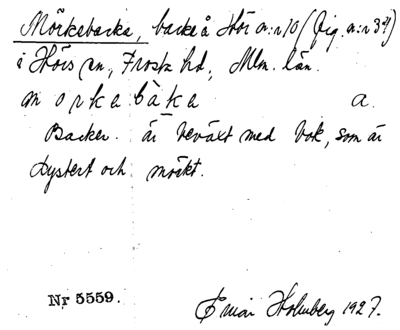 Mörkebacka, backe å Hör n:r 10 (fig. n:r 39)
i Hörs sn, Frosta hd, Mlm. län.
mörkabåka a.
Backen är beväxt med bok, som är
dystert och mörkt.
Nr 5559. Einar Holmberg 1927.